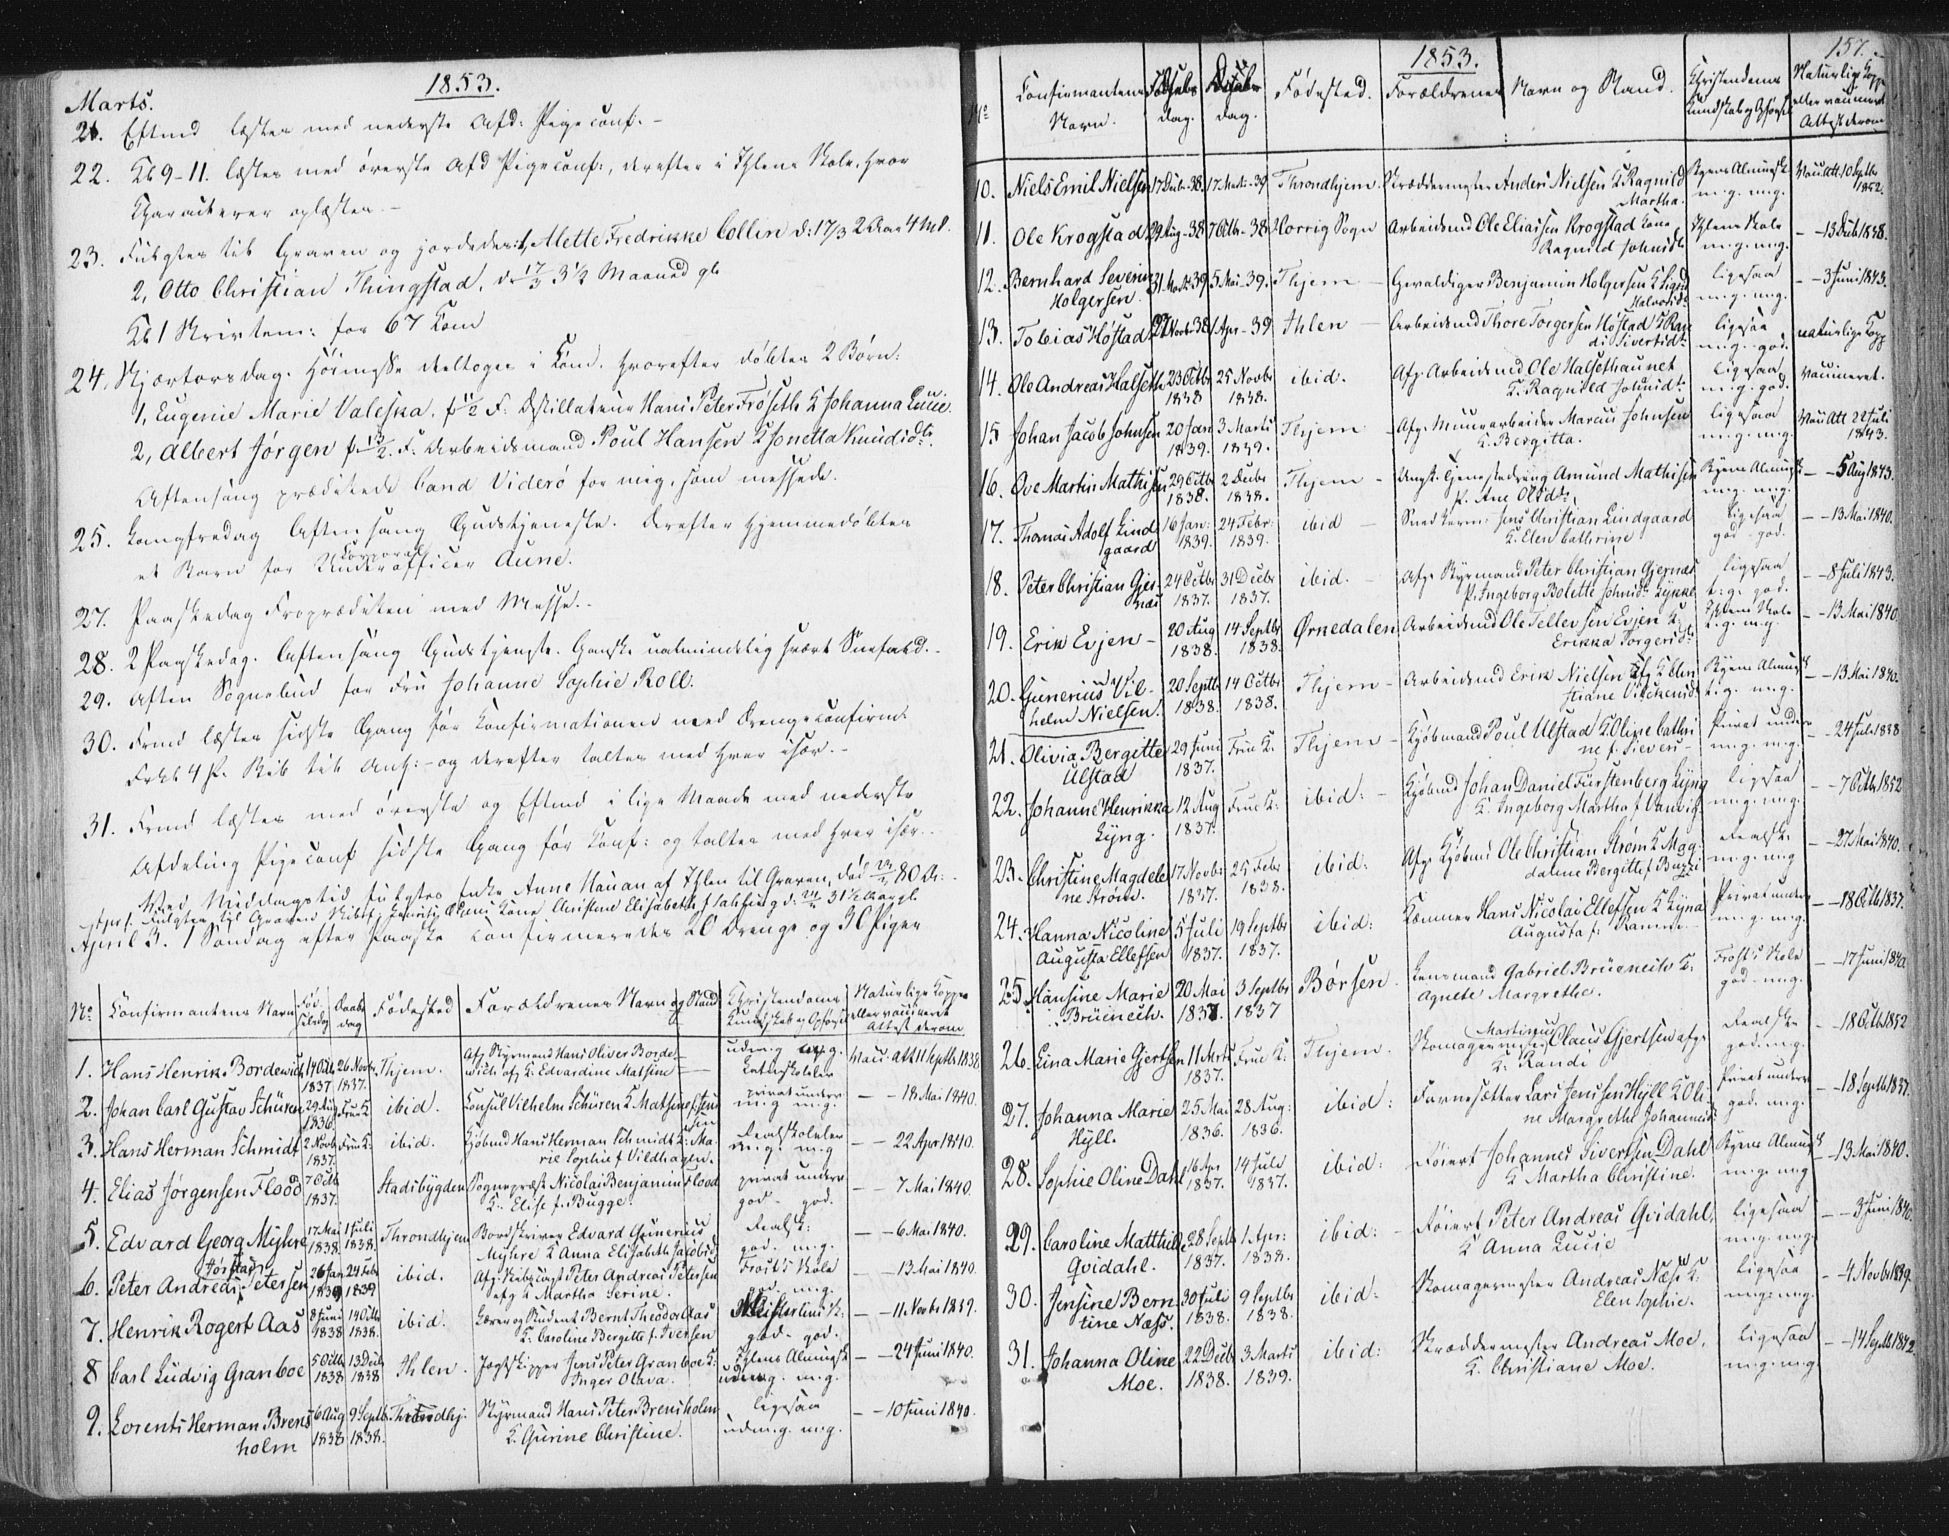 1853.
Marts.
21. Eftmd læsten med nederste Afd: Pigeconf. -
22. Kl 9-11. læsten med øverste Afd Pigeconf:, derefter i Ihlens Skole, hvor
Characterer oplæsten. -
23. Fulgtes til Graven og jordedes: 1, Alette Fredrikke Collin d: 17/3 2 Aar 4 Md.
2, Otto Christian Thingstad. d 17/3 3½ Maaned gl
Kl 1 Skriftem: for 67 Com
24. Skjærtorsdag. Höimesse deeltoges i Com. hvorefter döbtes 2 Børn:
1, Eugenie Marie Valeska. f 1/2 F: Destillateur Hans Peter Fröseth K Johanna Lucie.
2, Albert Jørgen f. 13/2. F. Arbeidsmand Poul Hansen K Jonetta Knudsdtr.
Aftensang prædikede Cand Viderö for mig, som messede.
25. Langfredag Aftensang Gudstjeneste. Derefter hjemmedöbtes
et Barn for Underofficer Aune.
Corporal
27. Paaskedag Froprædiken med Messe. -
28. 2 Paaskedag. Aftensang Gudstjenste. Ganske ualmindelig svært Snefald. -
29. Aften Sognebud for Fru Johanne Sophie Roll.
30. Frmd læsten sidste Gang för Confirmationen med Drengeconfirm.
og derefter talten med hver især. -
31. Frmd læsten med øverste og Eftmd i lige Maade med nederste
Afdeling Pigeconf sidste Gang för Conf: og talten med hver især. -
Ved Middagstid fulgtes Enke Anne Hauan af Ihlen til Graven, död 80 A: -
April 3. 1 Söndag efter Paaske confirmeredes 20 Drenge og 30 Piger
No Confirmantens Navn Födselsdag Daabsdag Födested Forældrenes Navn og Stand Christendoms Kundskab og Opförsel Naturlige Kopper eller vaccineret Attest derom
1. Hans Henrik Bordewich 14 Octb 1837 26 Novbr 1837. Thjem. Afg. Styrmand Hans Oliver Bordewich afg K. Edvardine Mathine udm.g mg. Latinskolelev Vacc. Att 11 Septb 1838
2. Johan Carl Gustav Schüren 29 Aug 1836 Frue K. ibid. Consul Vilhelm Schüren K Mathine f. Jensen privat underv m.g. m.g. - - 18 Mai 1840.
3. Hans Herman Schmidt 2 Novb 1837. Frue K. ibid. Kjöbmd Hans Herman Schmidt K: Marie Sophie f Vildhagen. Realskolelev m.g. m.g - - 22 Apr 1840.
4. Elias Jörgensen Flood 7 Octb 1837. Stadsbygden Sognepræst Nicolai Benjamin Flood K. Elise f. Bugge. privat underv god - god. - - 7 Mai 1840.
5. Edvard Georg Myhre 17 Mai 1838 1 Juli 1838. Throndhjem Bordskriver Edvard Gunerius Myhre K Anna Elisabeth Jacobsd Realsk: god. m.g. - - 6 Mai 1840.
6. Peter Andreas Petersen Jörstad 26 Jan 1839 24 Febr 1839 ibid. Afg. Peter Andreas Petersen afg K Martha Serine. Frosts Skole god m.g. - - 13 Mai 1840.
7. Henrik Rogert Aas 8 Juni 1838 14 Octb 1838. ibid. Lærer og Student Bernt Theodor Aas K. Caroline Bergitte f. Iversen god - god. - - 11 Novbr 1839.
8 Carl Ludvig Granboe 5 Octb 1838 13 Decb 1838 Ihlen. Jagtskipper Jens Peter Granboe K. Inger Olava. Ihlens Almuesk udm.g. m.g. - - 24 Juni 1840.
9. Lorents Herman Brensholm 6 Aug 1838 9 Septb 1838. Throndhj. Styrmand Hans Peter Brensholm K. Gurine Christine. ligesaa udm.g. m.g. - - 10 Juni 1840.
1853. 157.
No Confirmantens Navn. Födselsdag. Daabsdag. Födested. Forældrenes Navn og Stand. Christendoms Kundskab og Opförsel Naturlige Kopp eller vaccineret Attest derom
10. Niels Emil Nielsen 17 Decb. 38. 17 Marts 39 Throndhjem. Skræddermester Anders Nielsen K Ragnild Martha. Byens Almuesk m.g. m.g. Vacc Att. 10 Septb 1852.
11. Ole Krogstad 29 Aug - 38 7 Octb - 38 Horrig Sogn Arbeidsmd Ole Eliassen Krogstad Kone Ragnild Johnsdt. Ihlens Skole m.g. m.g. - - 13 Decb 1838.
12. Bernhard Severin Holgersen. 31 Marts 39 5 Mai - 39. Thjem - Gevaldiger Benjamin Holgersen K Sigrid Halvorsdt. ligesaa m.g. mg. - - 3 Juni 1843.
13. Tobias Höstad 27 Novb. 38 1 Apr - 39 Ihlen - Arbeidsmd Thore Torgersen Höstad K Randi Sivertsdtr. ligesaa m.g. god. naturlige Kopp
14. Ole Andreas Halseth 23 Octb 1838 25 Novbr 1838. ibid. Afg. Arbeidsmd Ole Halsethaunet K. Ragnild Johnsdt. ligesaa m.g. god. vaccineret.
15 Johan Jacob Johnsen 20 Jan 1839. 3 Marts 1839. Thjem Afg. Muurarbeider Marcus Johnsen K. Bergitta. ligesaa m.g. m.g. Vacc Att 22 Juli 1843.
16. Ove Martin Mathisen 29 Octb 1838. 2 Decbr 1838. Thjem - Ungk. Tjenestedreng Amund Mathisen P. Ane Olsdt. Byens Almuesk m.g. m.g. - - 5 Aug 1843.
17. Thomas Adolf Lindgaard 16 Jan: 1839. 24 Febr: 1839. ibid - Snedkerm: Jens Christian Lindgaard K. Elen Cathrine ligesaa god - god. - - 13 Mai 1840.
18. Peter Christian Gjernæs 24 Octb 1837. 31 Decbr 1837. ibid. - Afg. Styrmand Peter Christian Gjernæs P. Ingeborg Bolette Johnsdt. Lykke ligesaa t.g. god. - - 8 Juli 1843.
19. Erik Evjen - 20 Aug 1838. 14 Septb 1838. Ørkedalen Arbeidsmd Ole Tellefsen Evjen K. Erikka Torgersdt. Ihlens Skole t.g. m.g. - - 13 Mai 1840.
20. Gunerius Vilhelm Nielsen. 20 Septb 1838. 14 Octbr 1838. Thjem - Arbeidsmd Erik Nielsen afg K Elen t.g. m.g. Byens Almuesk - - 13 Mai 1840.
21. Olivia Bergitte Ulstad 29 Juni 1837. Frue K. Thjem - Kjöbmand Poul Ulstad K Oline Cathrine f. Sievers - Privat underv m.g. m.g. - - 24 Juli 1838
22. Johanne Henrikka Lyng. 12 Aug 1837. Frue K: ibid: - Kjöbmd Johan Daniel Fürstenberg Lyng K. Ingeborg Martha f. Vanvig. ligesaa m.g. m.g. - - 7 Octb 1852
23. Christine Magdelene Ström. 17 Novbr 1837. 25 Febr 1838. ibid: Afg Kjöbmd Ole Christian Ström K Magdalene Bergitte f Buggi Realsk. m.g. mg - - 27 Mai 1840.
24. Hanna Nicoline Augusta Ellefsen 5 Juli 1837. 19 Septbr 1837. ibid: Kæmner Hans Nicolai Ellefsen K Lyna Augusta f: Privat underv m.g. m.g. - - 18 Octb 1837.
25. Hansine Marie Brünech. 20 Mai 1837. 3 Septbr 1837 Börsen. Lensmand Gabriel Brünech K: Agnete Margrethe. Frosts Skole god - m.g. - - 17 Juni 1840.
26. Lina Marie Gjertsen 11 Marts 1837. Frue K. Thjem. Skomagermester Martinus Olaus Gjertsen afg. K: Randi Realsk god. m.g. - 18 Octb 1852
27. Johanna Marie Hyll. 25 Mai 1836. 28 Aug: 1836. ibid: Farvesætter Lars Jensen Hyll K Oline Margrethe Johannesd. Privat underv god. m.g. - 18 Septb 1837.
28. Sophie Oline Dahl 16 Apr 1837. 14 Juli 1837. ibid: Föiert Johannes Sivertsen Dahl K Martha Christine. Byens Almuesk m.g. m.g - 13 Mai 1840.
29. Caroline Matthilde Qvidahl. 28 Septb 1837. 1 Apr: 1838. ibid: Föiert Peter Andreas Qvidahl. K Anna Lucie ligesaa m.g. m.g. - - 3 Juni 1840.
30. Jensine Berntine Næss. 30 Juli 1838. 9 Septbr 1838. ibid: Skomagermester Andreas Næss K: Elen Sophie. ligesaa m.g. m.g. - 4 Novbr 1839.
31. Johanna Oline Moe. 22 Decbr 1838. 3 Marts 1839. ibid: Skræddermester Andreas Moe, K. Christiane Moe. ligesaa m.g. m.g. - 14 Septb 1842.